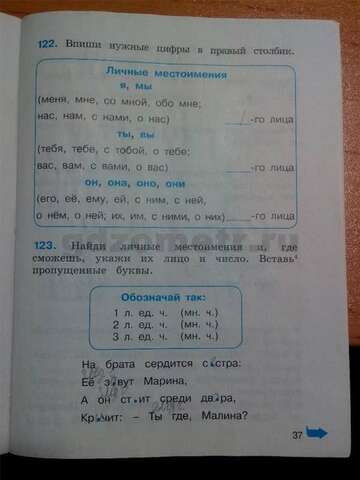 122. Впиши нужные цифры в правый столбик.
Личные местоимения
я, мы
(меня, мне, со мной, обо мне;
нас, нам, с нами, о нас) ___-го лица
ты, вы
(тебя, тебе, с тобой, о тебе;
вас, вам, с вами, о вас) ___-го лица
он, она, оно, они
(его, её, ему, ей, с ним, с ней,
о нём, о ней; их, им, с ними, о них) ___-го лица
123. Найди личные местоимения и, где
сможешь, укажи их лицо и число. Вставь
пропущенные буквы.
Обозначай так:
1 л. ед. ч. (мн. ч.)
2 л. ед. ч. (мн. ч.)
3 л. ед. ч. (мн. ч.)
На брата сердится с.стра:
Её з.вут Марина,
А он ст.ит среди дв.ра,
Кр.чит: – Ты где, Малина?
37